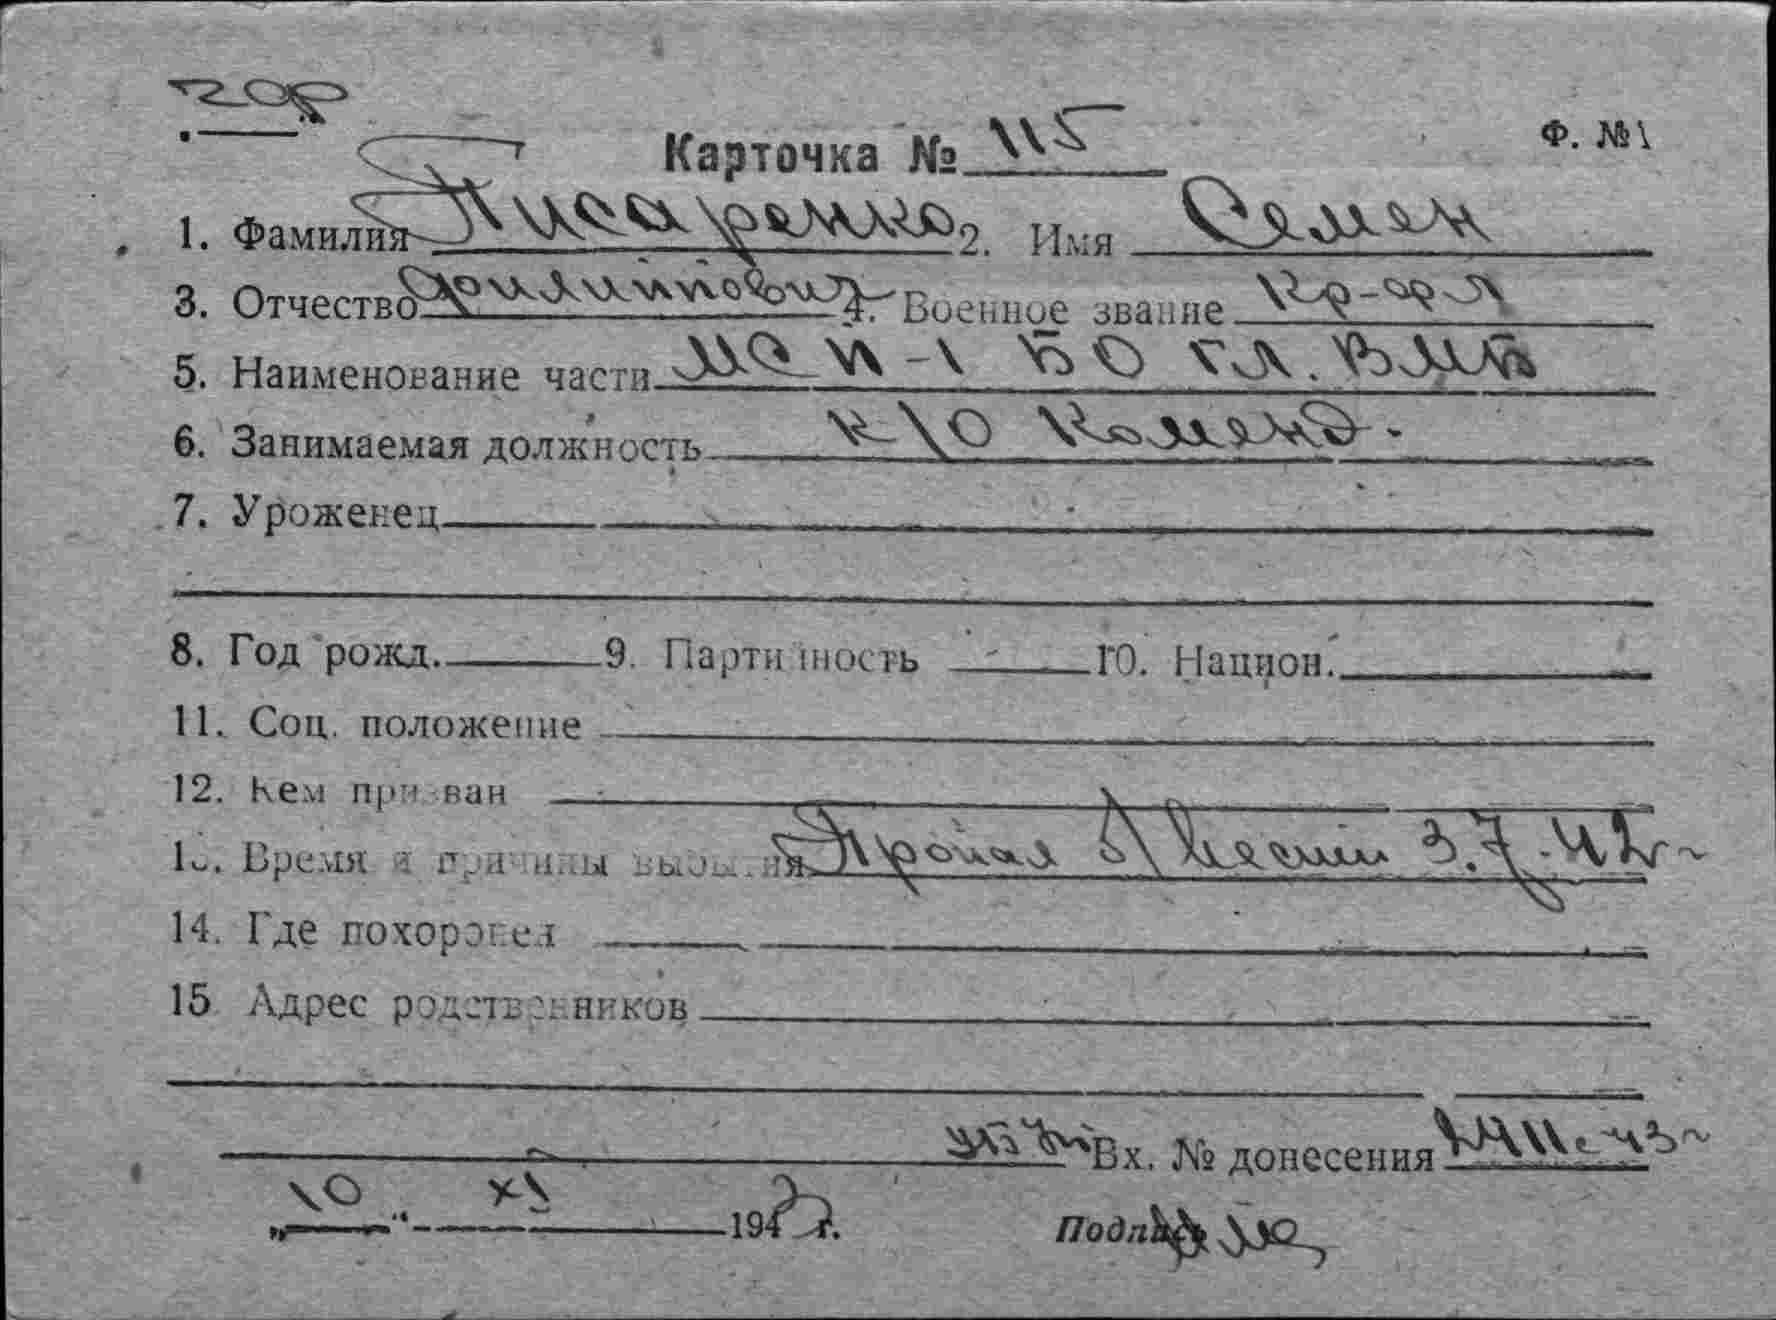 Карточка № 115
Ф. №1
1. Фамилия Писаренко 2. Имя Семен
3. Отчество Филиппович 4. Военное звание кр-фл
5. Наименование части БО гл. ВМБ
6. Занимаемая должность к/о Коменд.
7. Уроженец
8. Год рожд. 9. Партийность 10. Национ.
11. Соц. положение
12. Кем призван
13. Время и причины выбытия Пропал б/вести 3.7.42г
14. Где похоронен
15 Адрес родственников
Вх. № донесения
„10“ XI 1943г.
Подпись